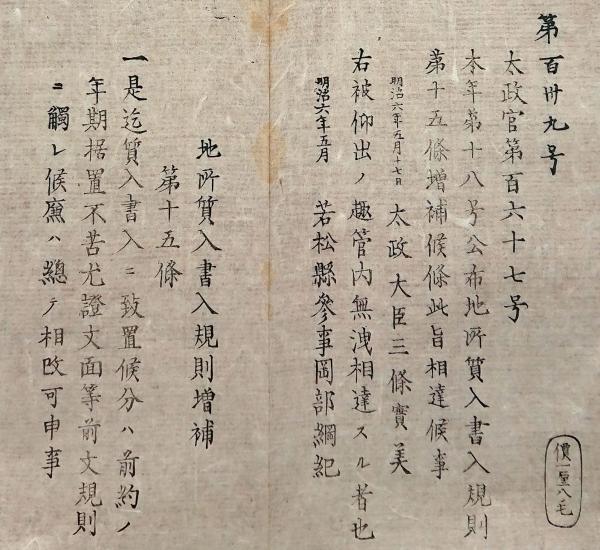 第百卅九号
太政官第百六十七号
本年第十八号公布地所質入書入規則
第十五條增補候條此旨相達候事
明治六年五月十七日 太政大臣三條實美
右被仰出ノ趣管内無洩相達スル者也
明治六年五月 若松縣參事岡部綱紀
地所質入書入規則增補
第十五條
一是迄質入書入ニ致置候分ハ前約ノ
年期据置不苦尤證文面等前文規則
ニ觸レ候廉ハ總テ相改可申事
價一厘八毛